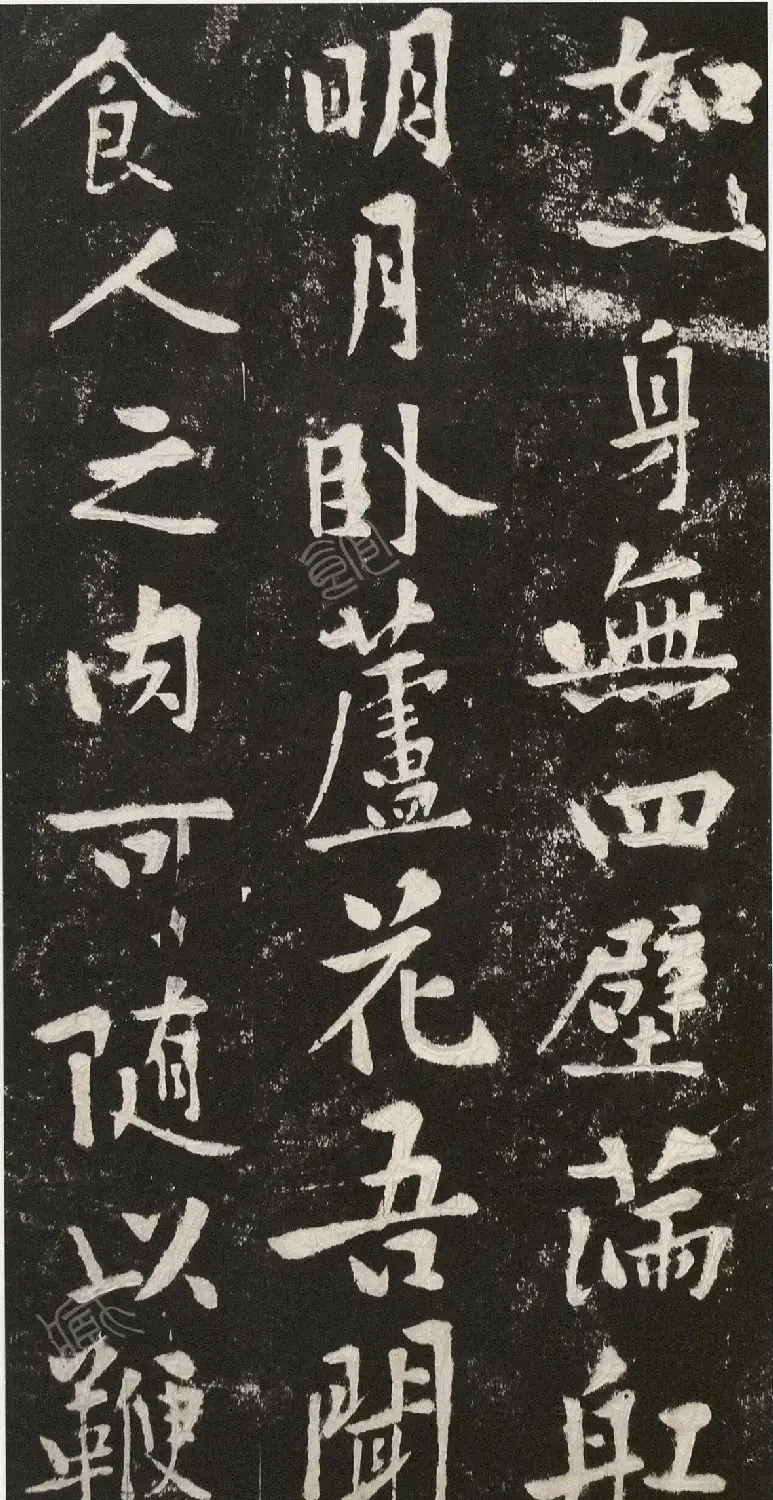 如一身無四壁滿舡
明月臥蘆花吾聞
食人之肉可隨以鞭